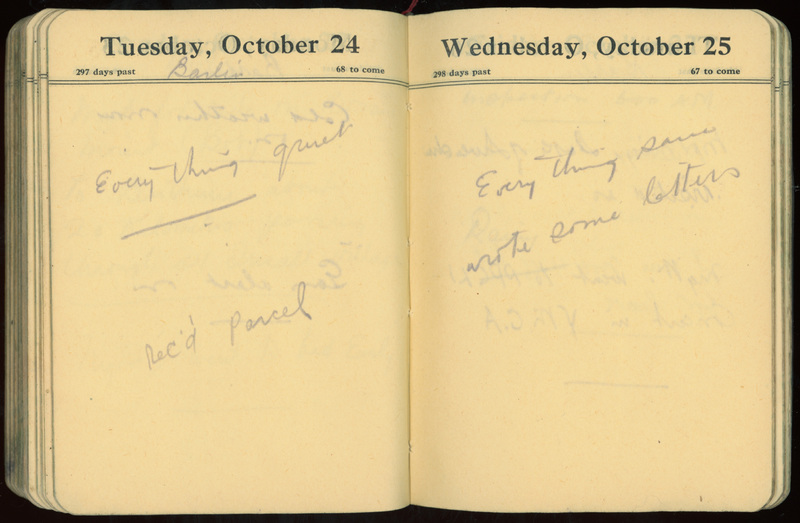 Tuesday, October 24
297 days past
68 to come
Barlin
Everything quiet
Rec'd parcel
Wednesday, October 25
298 days past
67 to come
Everything same
wrote some letters